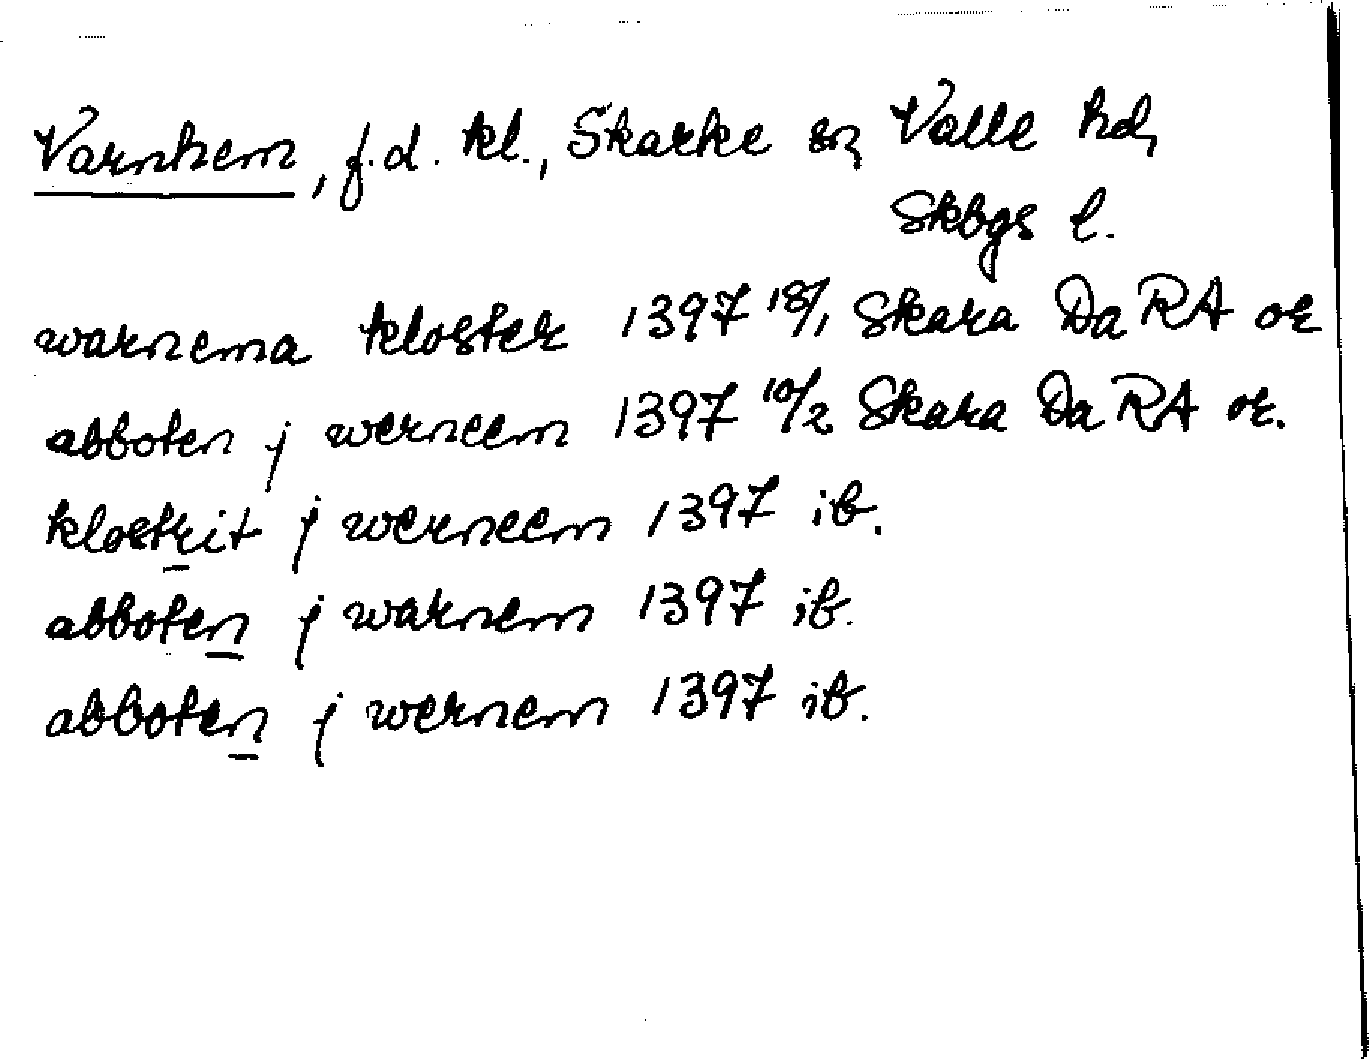 Varnhem, f.d. kl., Skarke sn, Valle hd,
Skbgs l.
warnema kloster 1397 18/1 Skara Da RA or
abboten j werneem 1397 10/2 Skara Da RA or.
klostrit j werneem 1397 ib.
abboten j warnem 1397 ib.
abboten j wernem 1397 ib.